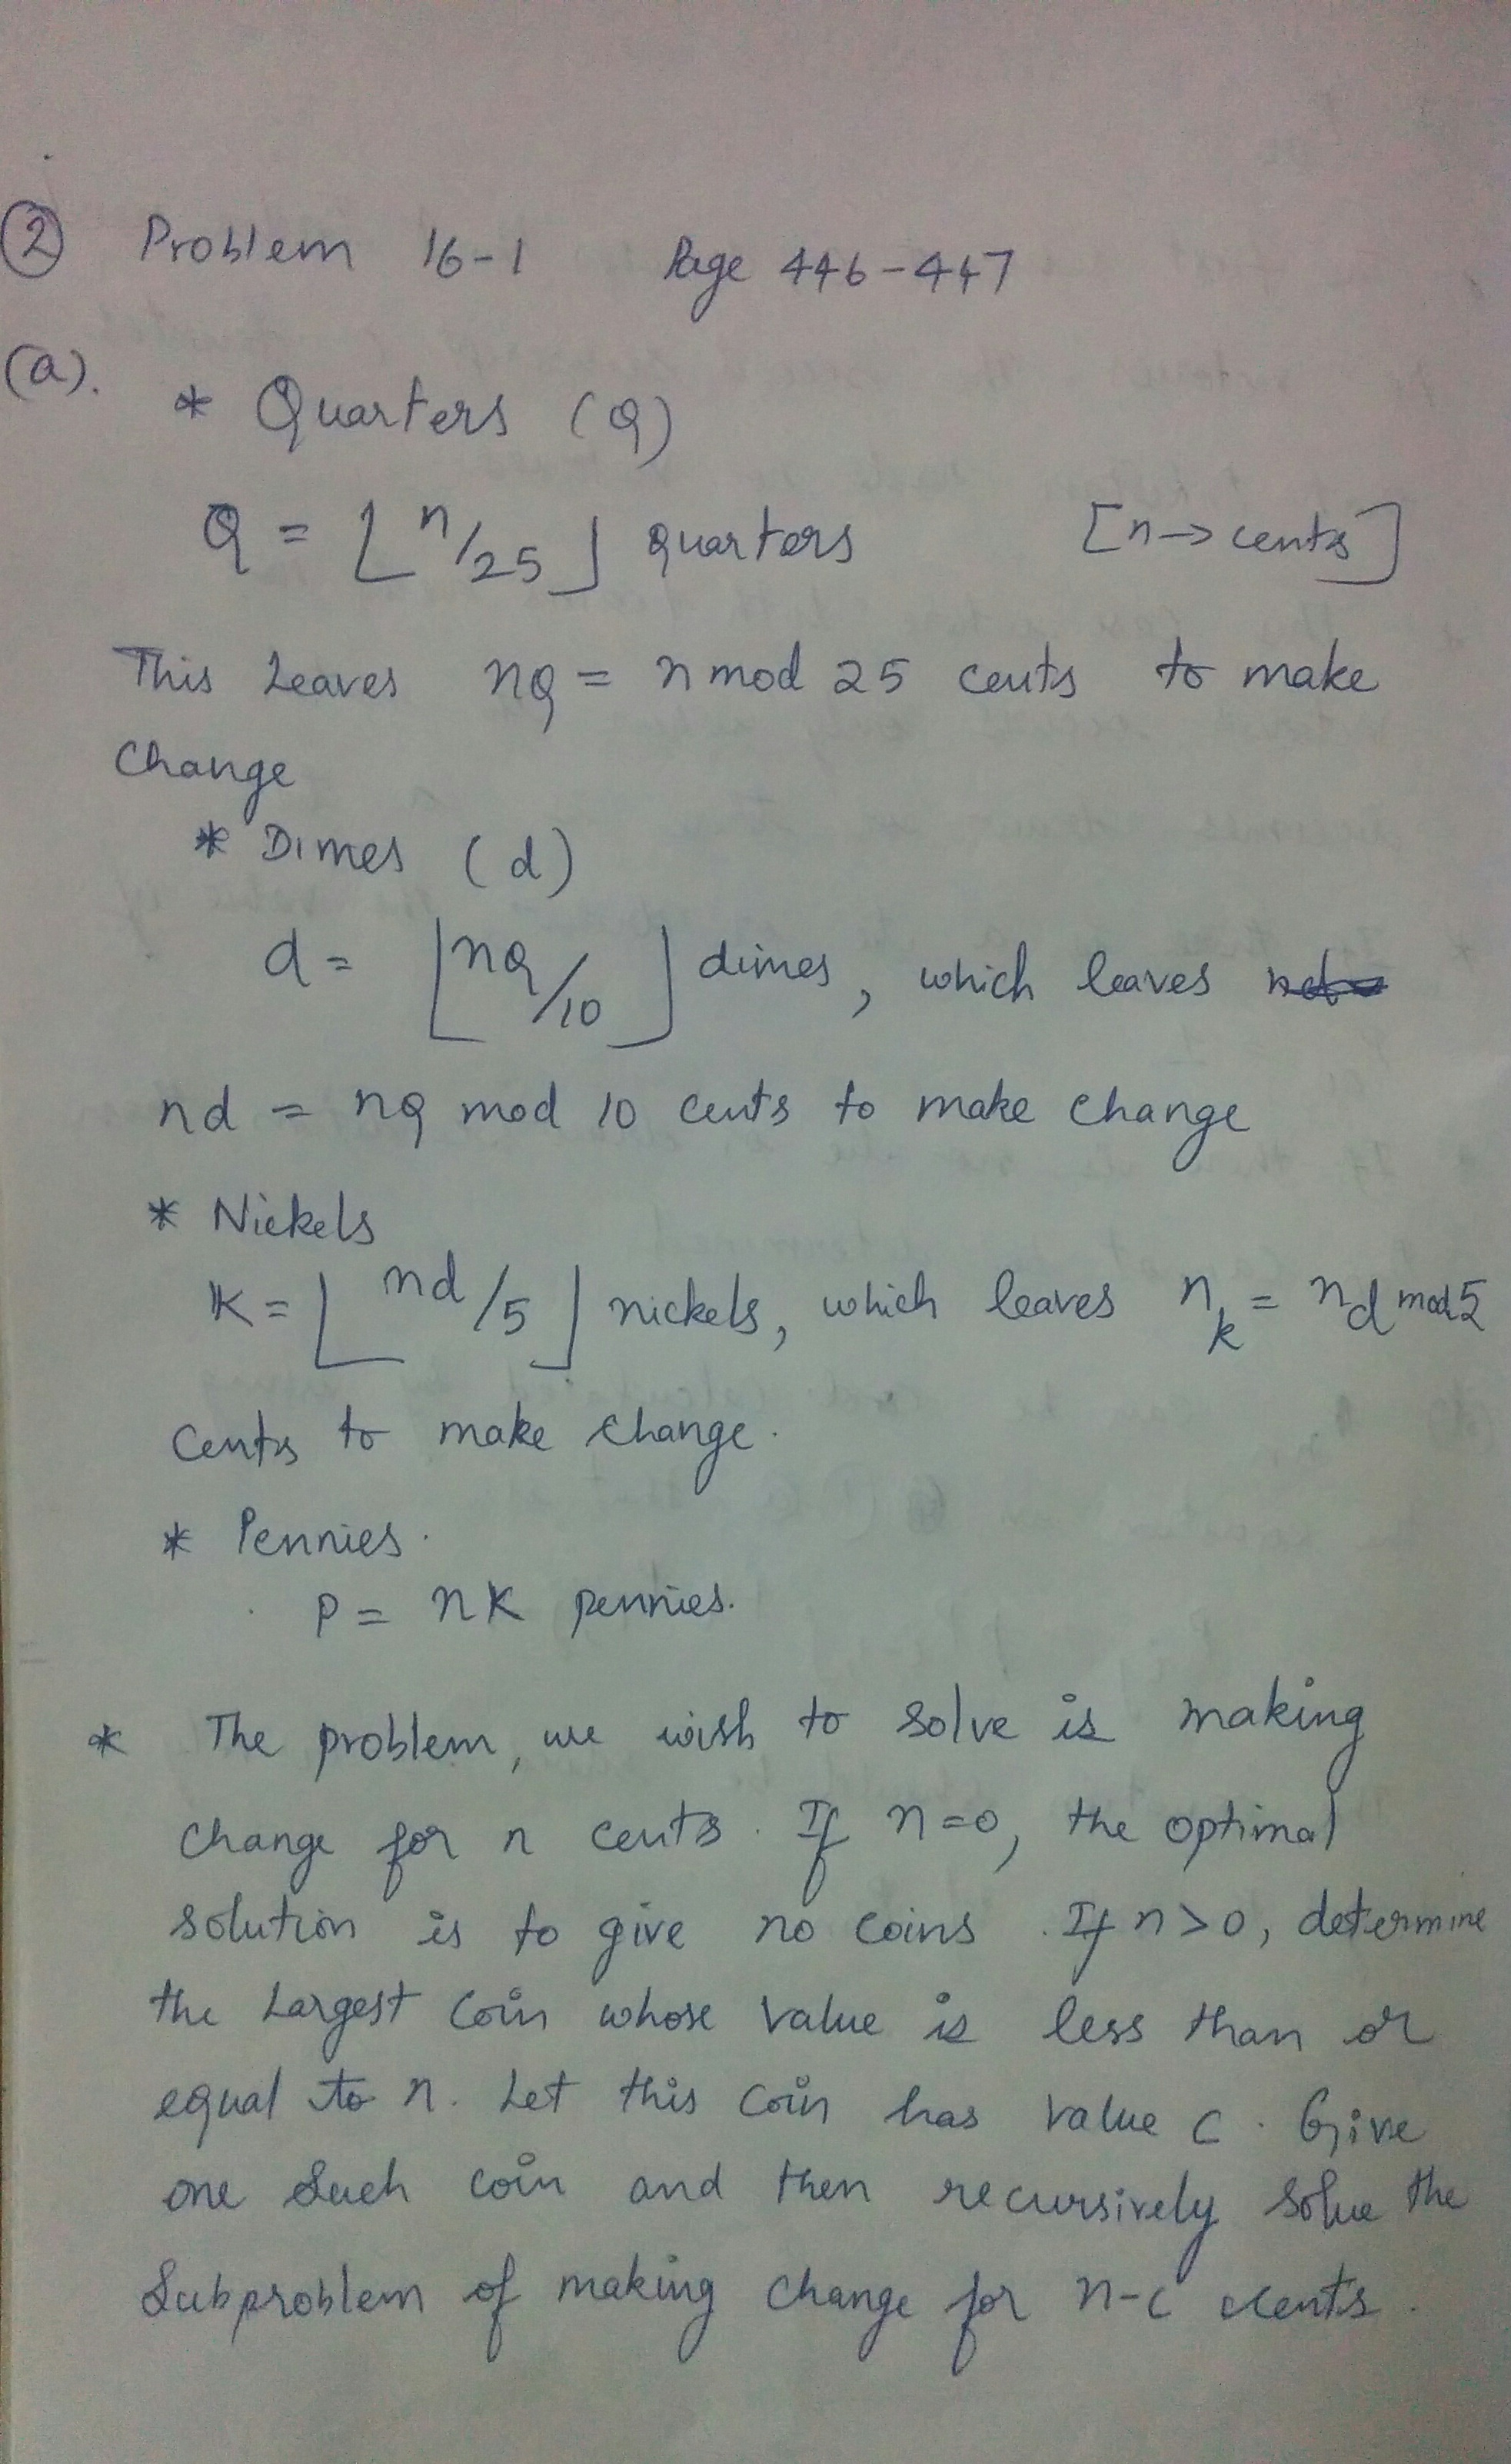 ② Problem 16-1 Page 446-447
(a).
* Quarters (Q)
Q = ⌊n/25⌋ quarters [n→cents]
This Leaves nQ = n mod 25 cents to make
Change
* Dimes (d)
d = ⌊nQ/10⌋ dimes, which leaves
nd = nQ mod 10 cents to make change
* Nickels
K = ⌊nd/5⌋ nickels, which leaves nk = nd mod 5
cents to make change.
* Pennies.
P = nK pennies.
* The problem, we wish to solve is making
change for n cents. If n=0, the optimal
solution is to give no coins. If n>0, determine
the Largest coin whose value is less than or
equal to n. Let this coin has value c. Give
one such coin and then recursively solve the
Subproblem of making change for n-c cents.